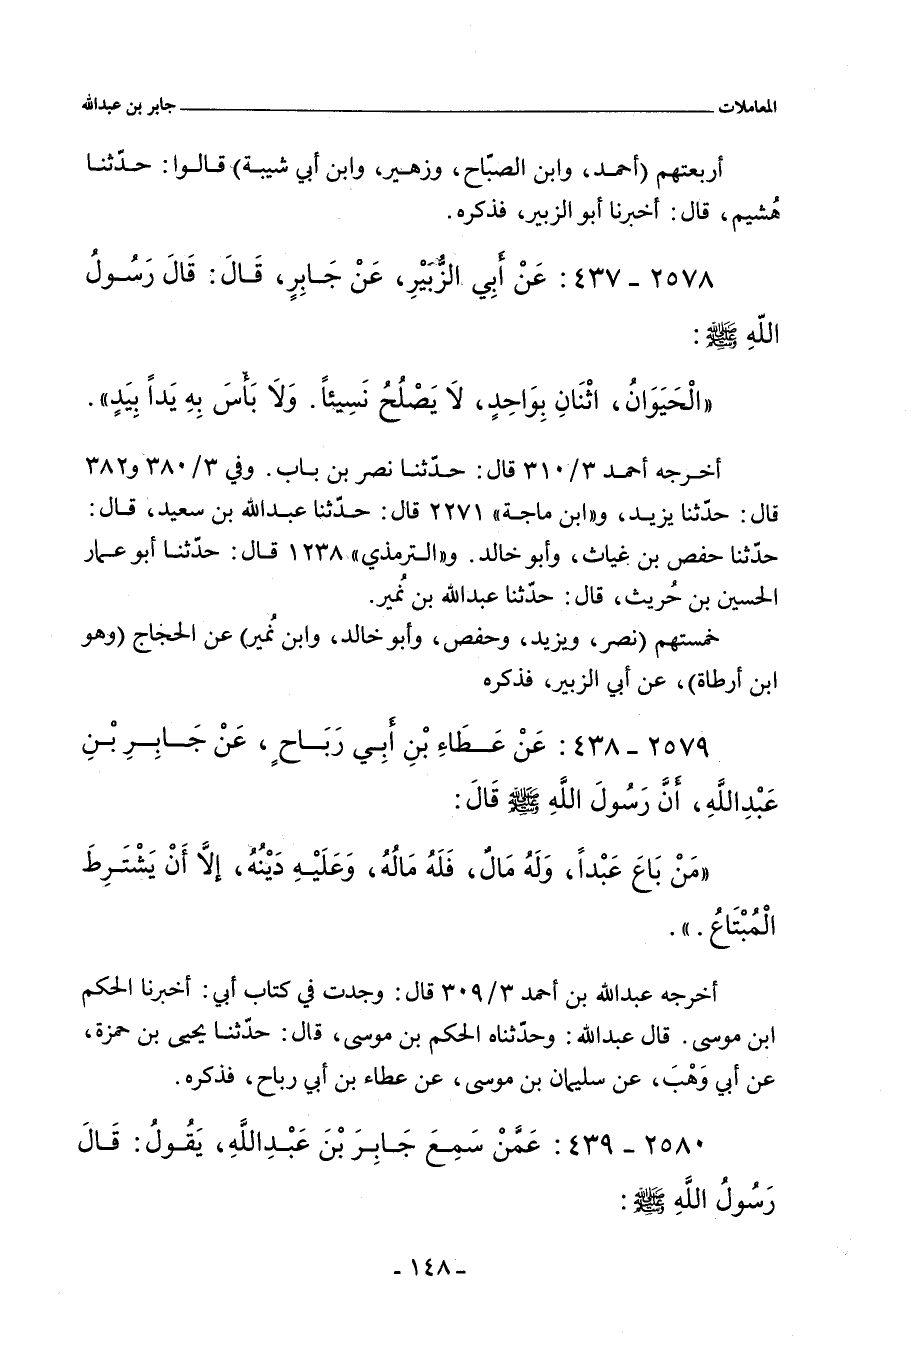 المعاملات ــــــــــ جابر بن عبدالله
أربعتهم (أحمد، وابن الصبّاح، وزهير، وابن أبي شيبة) قالوا: حدّثنا
هُشيم، قال: أخبرنا أبو الزبير، فذكره.
٢٥٧٨ - ٤٣٧: عَنْ أَبِي الزُّبَيْرِ، عَنْ جَابِرٍ، قَالَ: قَالَ رَسُولُ
اللَّهِ ﷺ:
«الْحَيَوَانُ، اثْنَانِ بِوَاحِدٍ، لَا يَصْلُحُ نَسِيئاً. وَلَا بَأْسَ بِهِ يَداً بِيَدٍ».
أخرجه أحمد ٣/ ٣١٠ قال: حدّثنا نصر بن باب. وفي ٣/ ٣٨٠ و٣٨٢
قال: حدّثنا يزيد، و«ابن ماجة» ٢٢٧١ قال: حدّثنا عبدالله بن سعيد، قال:
حدّثنا حفص بن غياث، وأبو خالد. و«الترمذي» ١٢٣٨ قال: حدّثنا أبو عمار
الحسين بن حُريث، قال: حدّثنا عبدالله بن نُمير.
خمستهم (نصر، ويزيد، وحفص، وأبو خالد، وابن نُمير) عن الحجاج (وهو
ابن أرطاة)، عن أبي الزبير، فذكره
٢٥٧٩ - ٤٣٨: عَنْ عَطَاءِ بْنِ أَبِي رَبَاحٍ، عَنْ جَابِرِ بْنِ
عَبْدِاللَّهِ، أَنَّ رَسُولَ اللَّهِ ﷺ قَالَ:
«مَنْ بَاعَ عَبْداً، وَلَهُ مَالٌ، فَلَهُ مَالُهُ، وَعَلَيْهِ دَيْنُهُ، إِلَّا أَنْ يَشْتَرِطَ
الْمُبْتَاعُ.».
أخرجه عبدالله بن أحمد ٣/ ٣٠٩ قال: وجدت في كتاب أبي: أخبرنا الحكم
ابن موسى. قال عبدالله: وحدّثناه الحكم بن موسى، قال: حدّثنا يحيى بن حمزة،
عن أبي وَهْبَ، عن سليمان بن موسى، عن عطاء بن أبي رباح، فذكره.
٢٥٨٠ - ٤٣٩: عَمَّنْ سَمِعَ جَابِرَ بْنَ عَبْدِاللَّهِ، يَقُولُ: قَالَ
رَسُولُ اللَّهِ ﷺ:
- ١٤٨ -